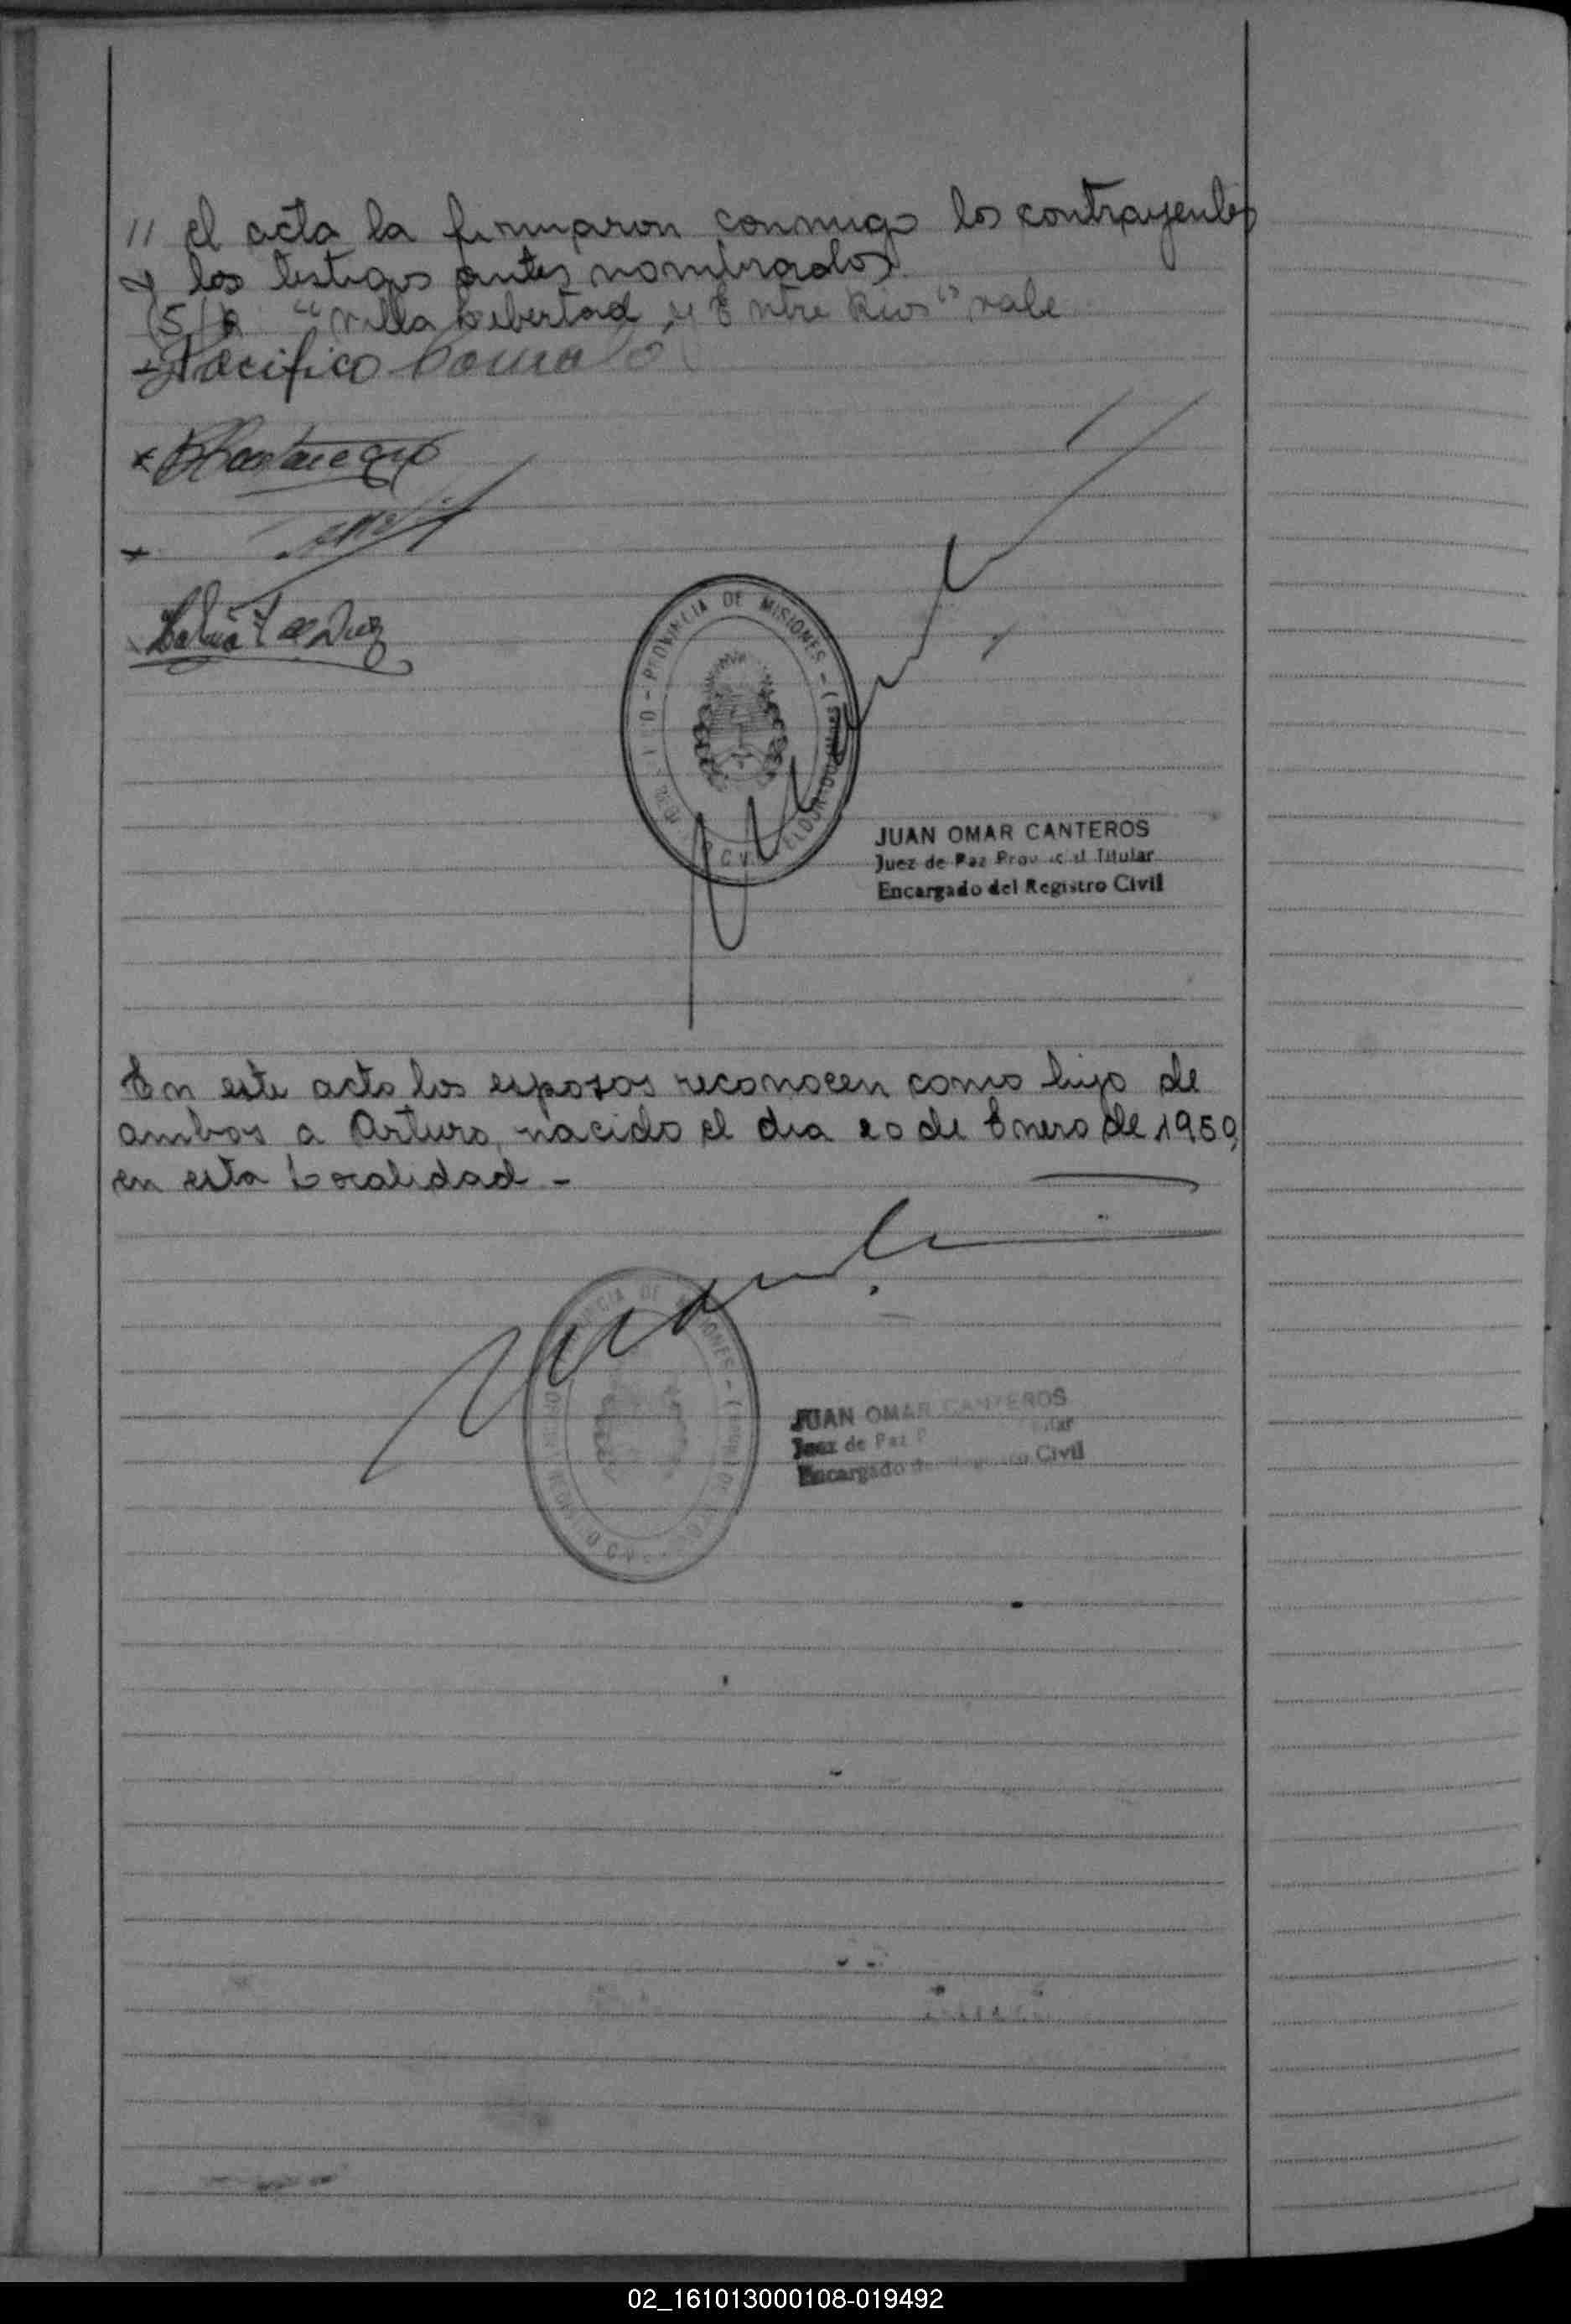 // el acta la firmaron conmigo los contrayentes
y los testigos antes nombrados.
"Villa Libertad y Entre Rios" vale
Pacifico
PROVINCIA DE MISIONES
JUAN OMAR CANTEROS
Juez de Paz Provincial Titular
Encargado del Registro Civil
En este acto los esposos reconocen como hijo de
ambos a Arturo, nacido el dia 20 de Enero de 1959,
en esta Localidad -
JUAN OMAR CANTEROS
Juez de Paz
Encargado Civil
02_161013000108-019492